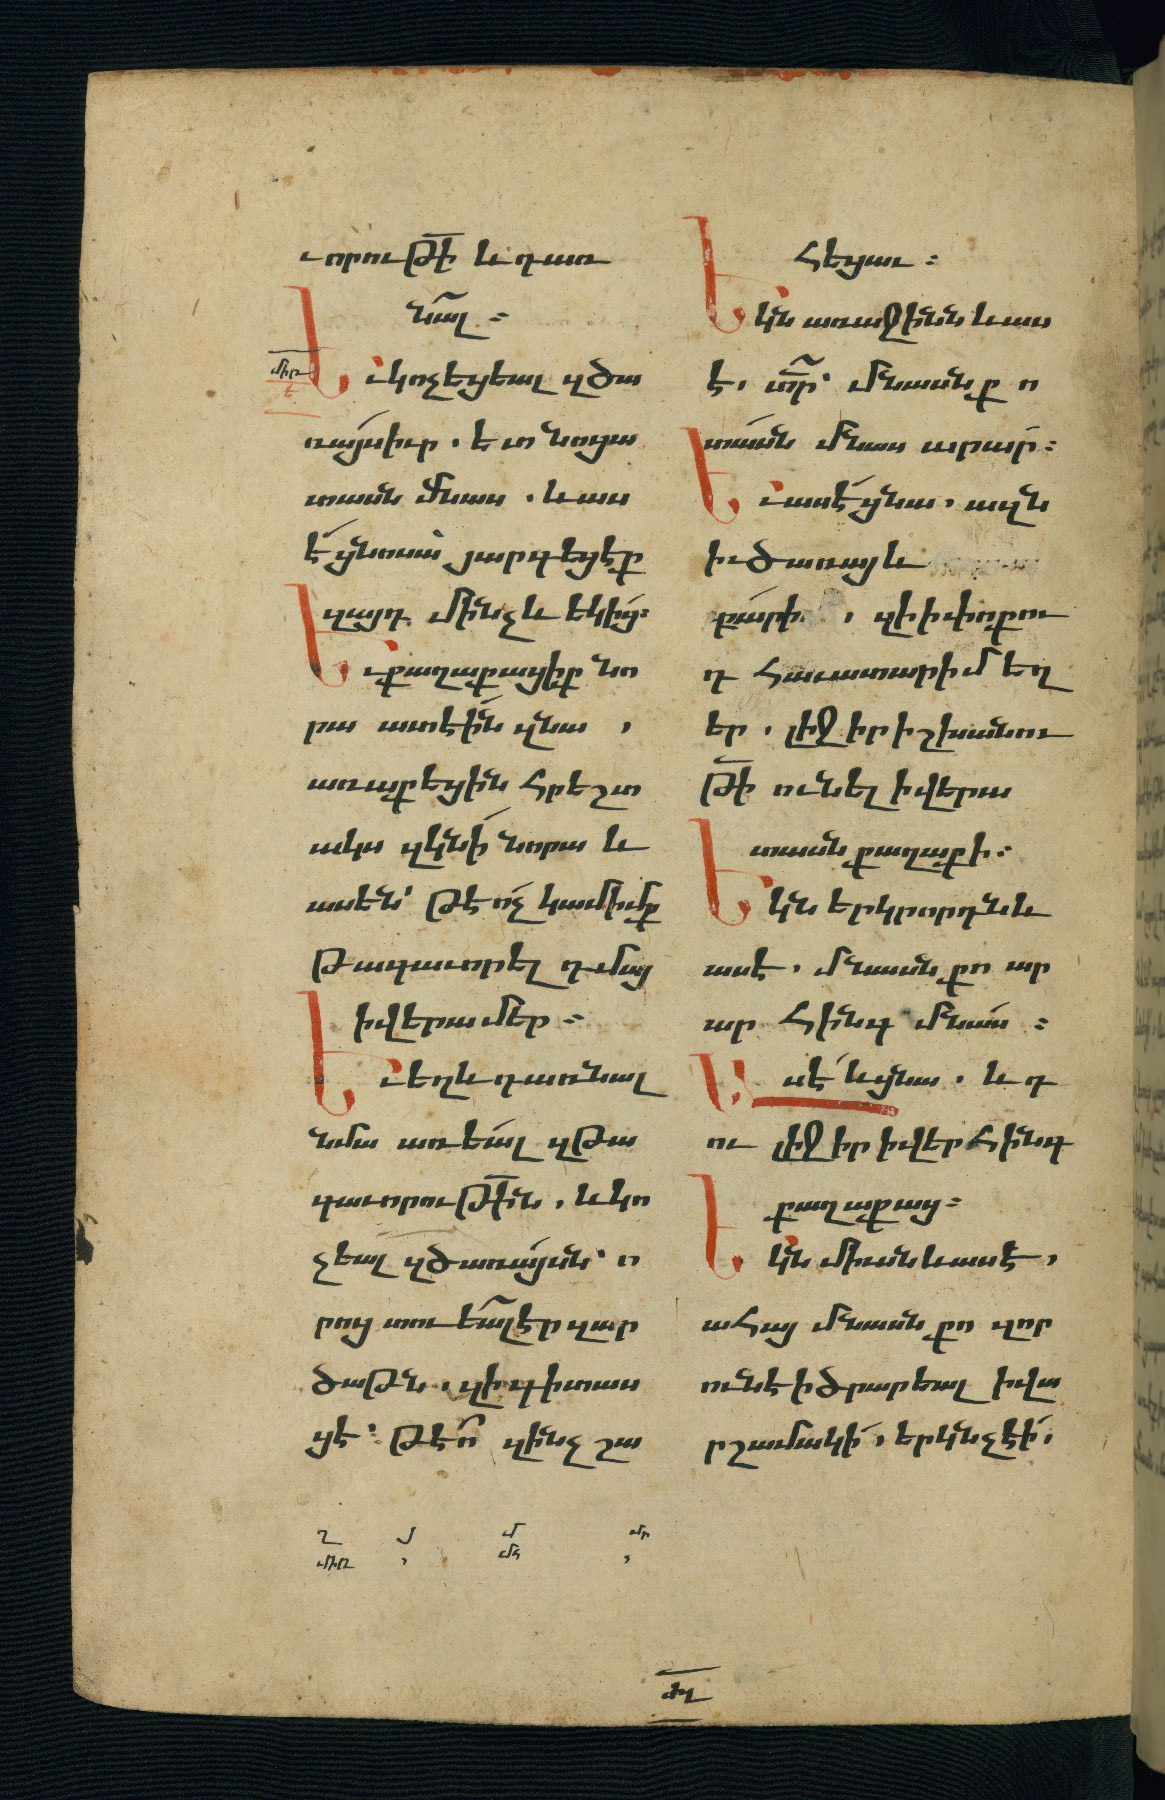 ւորութի և դառ
նալ ։
Եւ կոչեցեալ զծա
ռայսիւր . ետ նոցա
տասն մնաս . և աս
է ցնոսա՝ յարգեցէք
զայդ մինչև եկից ։
Եւ քաղաքացիք նո
րա ատեին զնա ,
առաքեցին հրեշտ
ակս զկնի նորա և
ասեն՝ թէ ոչ կամիմք
թագաւորել դմայ
ի վերա մեր ։
Եւ եղև դառնալ
նմա առեալ զթա
գաւորութին , և կո
չեալ զծառայսն՝ ո
րոց տուեալ էր զար
ծաթն , զի գիտաս
ցէ՝ թէ ո զինչ շա
հեցաւ ։
Եկն առաջինն և աս
է , տր՝ մնասն ք ո
տասն մնաս արար ։
Եւ ասէ ցնա , ազն
իւ ծառայ և
բարի , զի ի փոքու
դ հաւատարիմ եղ
եր , լիջ իր իշխանու
թի ունել ի վերա
տասն քաղաքի ։
Եկն երկրորդն և
ասէ , մնասն քո ար
ար հինգ մնաս ։
Ասէ և ցնա , և դ
ու լիջ իր ի վեր հինգ
քաղաքաց ։
Եկն միւսն և ասէ ,
ահայ մնասն քո զոր
ունէի ծրարեալ ի վա
րշամակի , երկնչէի ,